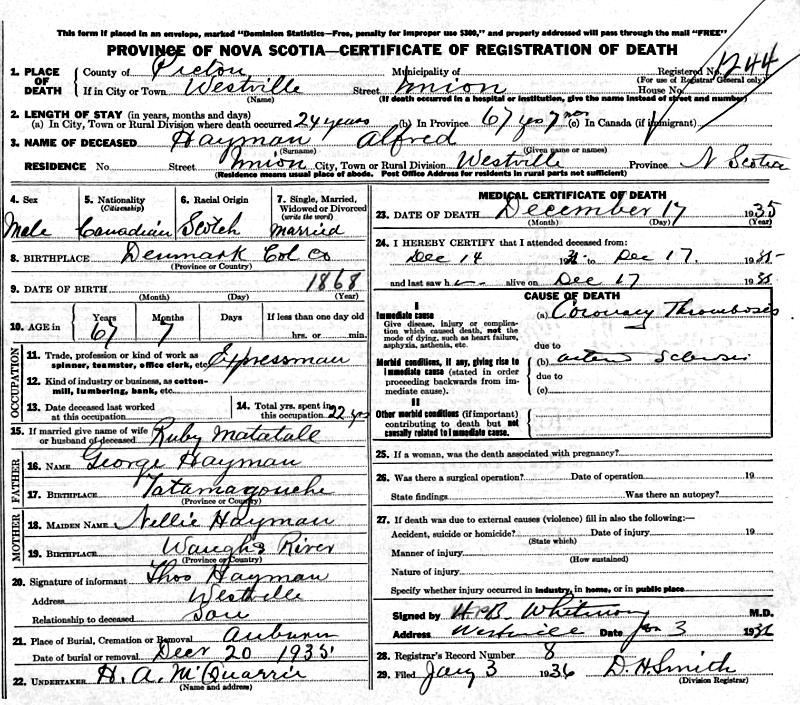 This form if placed in an envelope, marked "Dominion Statistics—Free, penalty for improper use $300," and properly addressed will pass through the mail "FREE"
PROVINCE OF NOVA SCOTIA—CERTIFICATE OF REGISTRATION OF DEATH
1. PLACE OF DEATH County of Pictou Municipality of Registered No. 1244
(For use of Registrar General only)
If in City or Town Westville Street Union House No.
(Name) (If death occurred in a hospital or institution, give the name instead of street and number)
2. LENGTH OF STAY (in years, months and days)
(a) In City, Town or Rural Division where death occurred 24 years (b) In Province 67 yrs 7 mos (c) In Canada (if immigrant)
3. NAME OF DECEASED Hayman Alfred
(Surname) (Given name or names)
RESIDENCE No. Street Union City, Town or Rural Division Westville Province N Scotia
(Residence means usual place of abode. Post Office Address for residents in rural parts not sufficient)
4. Sex Male
5. Nationality (Citizenship) Canadian
6. Racial Origin Scotch
7. Single, Married, Widowed or Divorced (write the word) Married
8. BIRTHPLACE Denmark Col Co
(Province or Country)
9. DATE OF BIRTH 1868
(Month) (Day) (Year)
10. AGE in Years 67 Months 7 Days If less than one day old hrs. or min.
OCCUPATION
11. Trade, profession or kind of work as spinner, teamster, office clerk, etc. Expressman
12. Kind of industry or business, as cotton-mill, lumbering, bank, etc.
13. Date deceased last worked at this occupation
14. Total yrs. spent in this occupation 22 yrs
15. If married give name of wife or husband of deceased Ruby Matatall
FATHER
16. NAME George Hayman
17. BIRTHPLACE Tatamagouche
(Province or Country)
MOTHER
18. MAIDEN NAME Nellie Hayman
19. BIRTHPLACE Waughs River
(Province or Country)
20. Signature of informant Thos Hayman
Address Westville
Relationship to deceased son
21. Place of Burial, Cremation or Removal Auburn
Date of burial or removal Decr 20 1935
22. UNDERTAKER H. A. McQuarrie
(Name and address)
MEDICAL CERTIFICATE OF DEATH
23. DATE OF DEATH December 17 1935
(Month) (Day) (Year)
24. I HEREBY CERTIFY that I attended deceased from:
Dec 14 19 to Dec 17 1935
and last saw h alive on Dec 17 1935
CAUSE OF DEATH
I
Immediate cause
Give disease, injury or complication which caused death, not the mode of dying, such as heart failure, asphyxia, asthenia, etc.
(a) Coronary Thrombosis
due to
Morbid conditions, if any, giving rise to immediate cause (stated in order proceeding backwards from immediate cause).
(b) arterio Sclerosis
due to
(c)
II
Other morbid conditions (if important) contributing to death but not causally related to immediate cause.
25. If a woman, was the death associated with pregnancy?
26. Was there a surgical operation? Date of operation 19
State findings Was there an autopsy?
27. If death was due to external causes (violence) fill in also the following:—
Accident, suicide or homicide? Date of injury 19
(State which)
Manner of injury
(How sustained)
Nature of injury
Specify whether injury occurred in industry, in home, or in public place
Signed by H B Whitman M.D.
Address Westville Date Jan 3 1936
28. Registrar's Record Number 8
29. Filed Jany 3 1936 D. H. Smith
(Division Registrar)